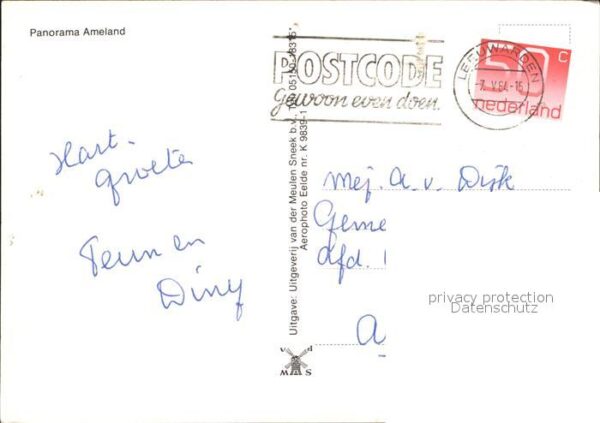 Panorama Ameland
De
POSTCODE
Gewoon even doen.
LEEUWARDEN
7.V.84.-15
50 C
nederland
Hart.
groeten
Teun en
Diny
Uitgave: Uitgeverij van der Meulen Sneek b.v. Tel.
Aerophoto Eelde nr. K 9839-1
mej. A. v. Dijk
Geme
Afd.
A
privacy protection
Datenschutz
v P
W S